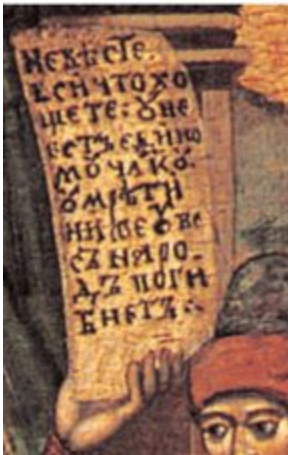 НЕВѢСТЕ.
ВСИ ЧТО ХО
ЩЕТЕ: ꙊНЕ
ЕСТЪ ЕДИНО
МꙊ ЧЛКꙊ.
ꙊМРѢТИ
НИЖЕ ВЕ
СЪ НАРО
ДЪ ПОГИ
БНЕТЪ:.